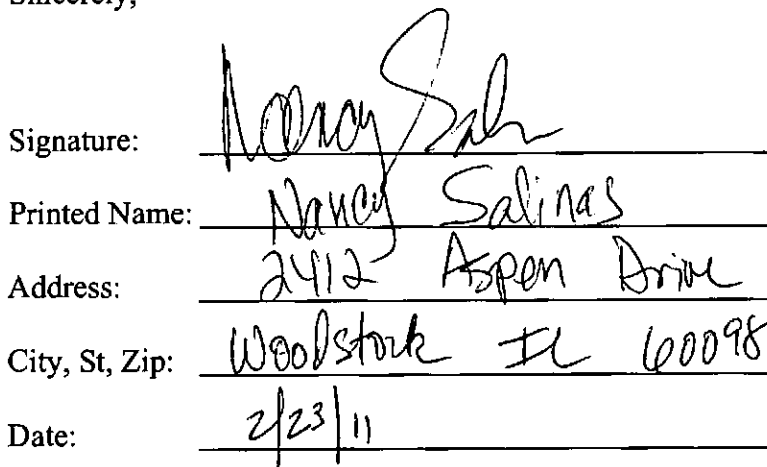 Sincerely,
Signature: Nancy Sal
Printed Name: Nancy Salinas
Address: 2412 Aspen Drive
City, St, Zip: Woodstock IL 60098
Date: 2/23/11